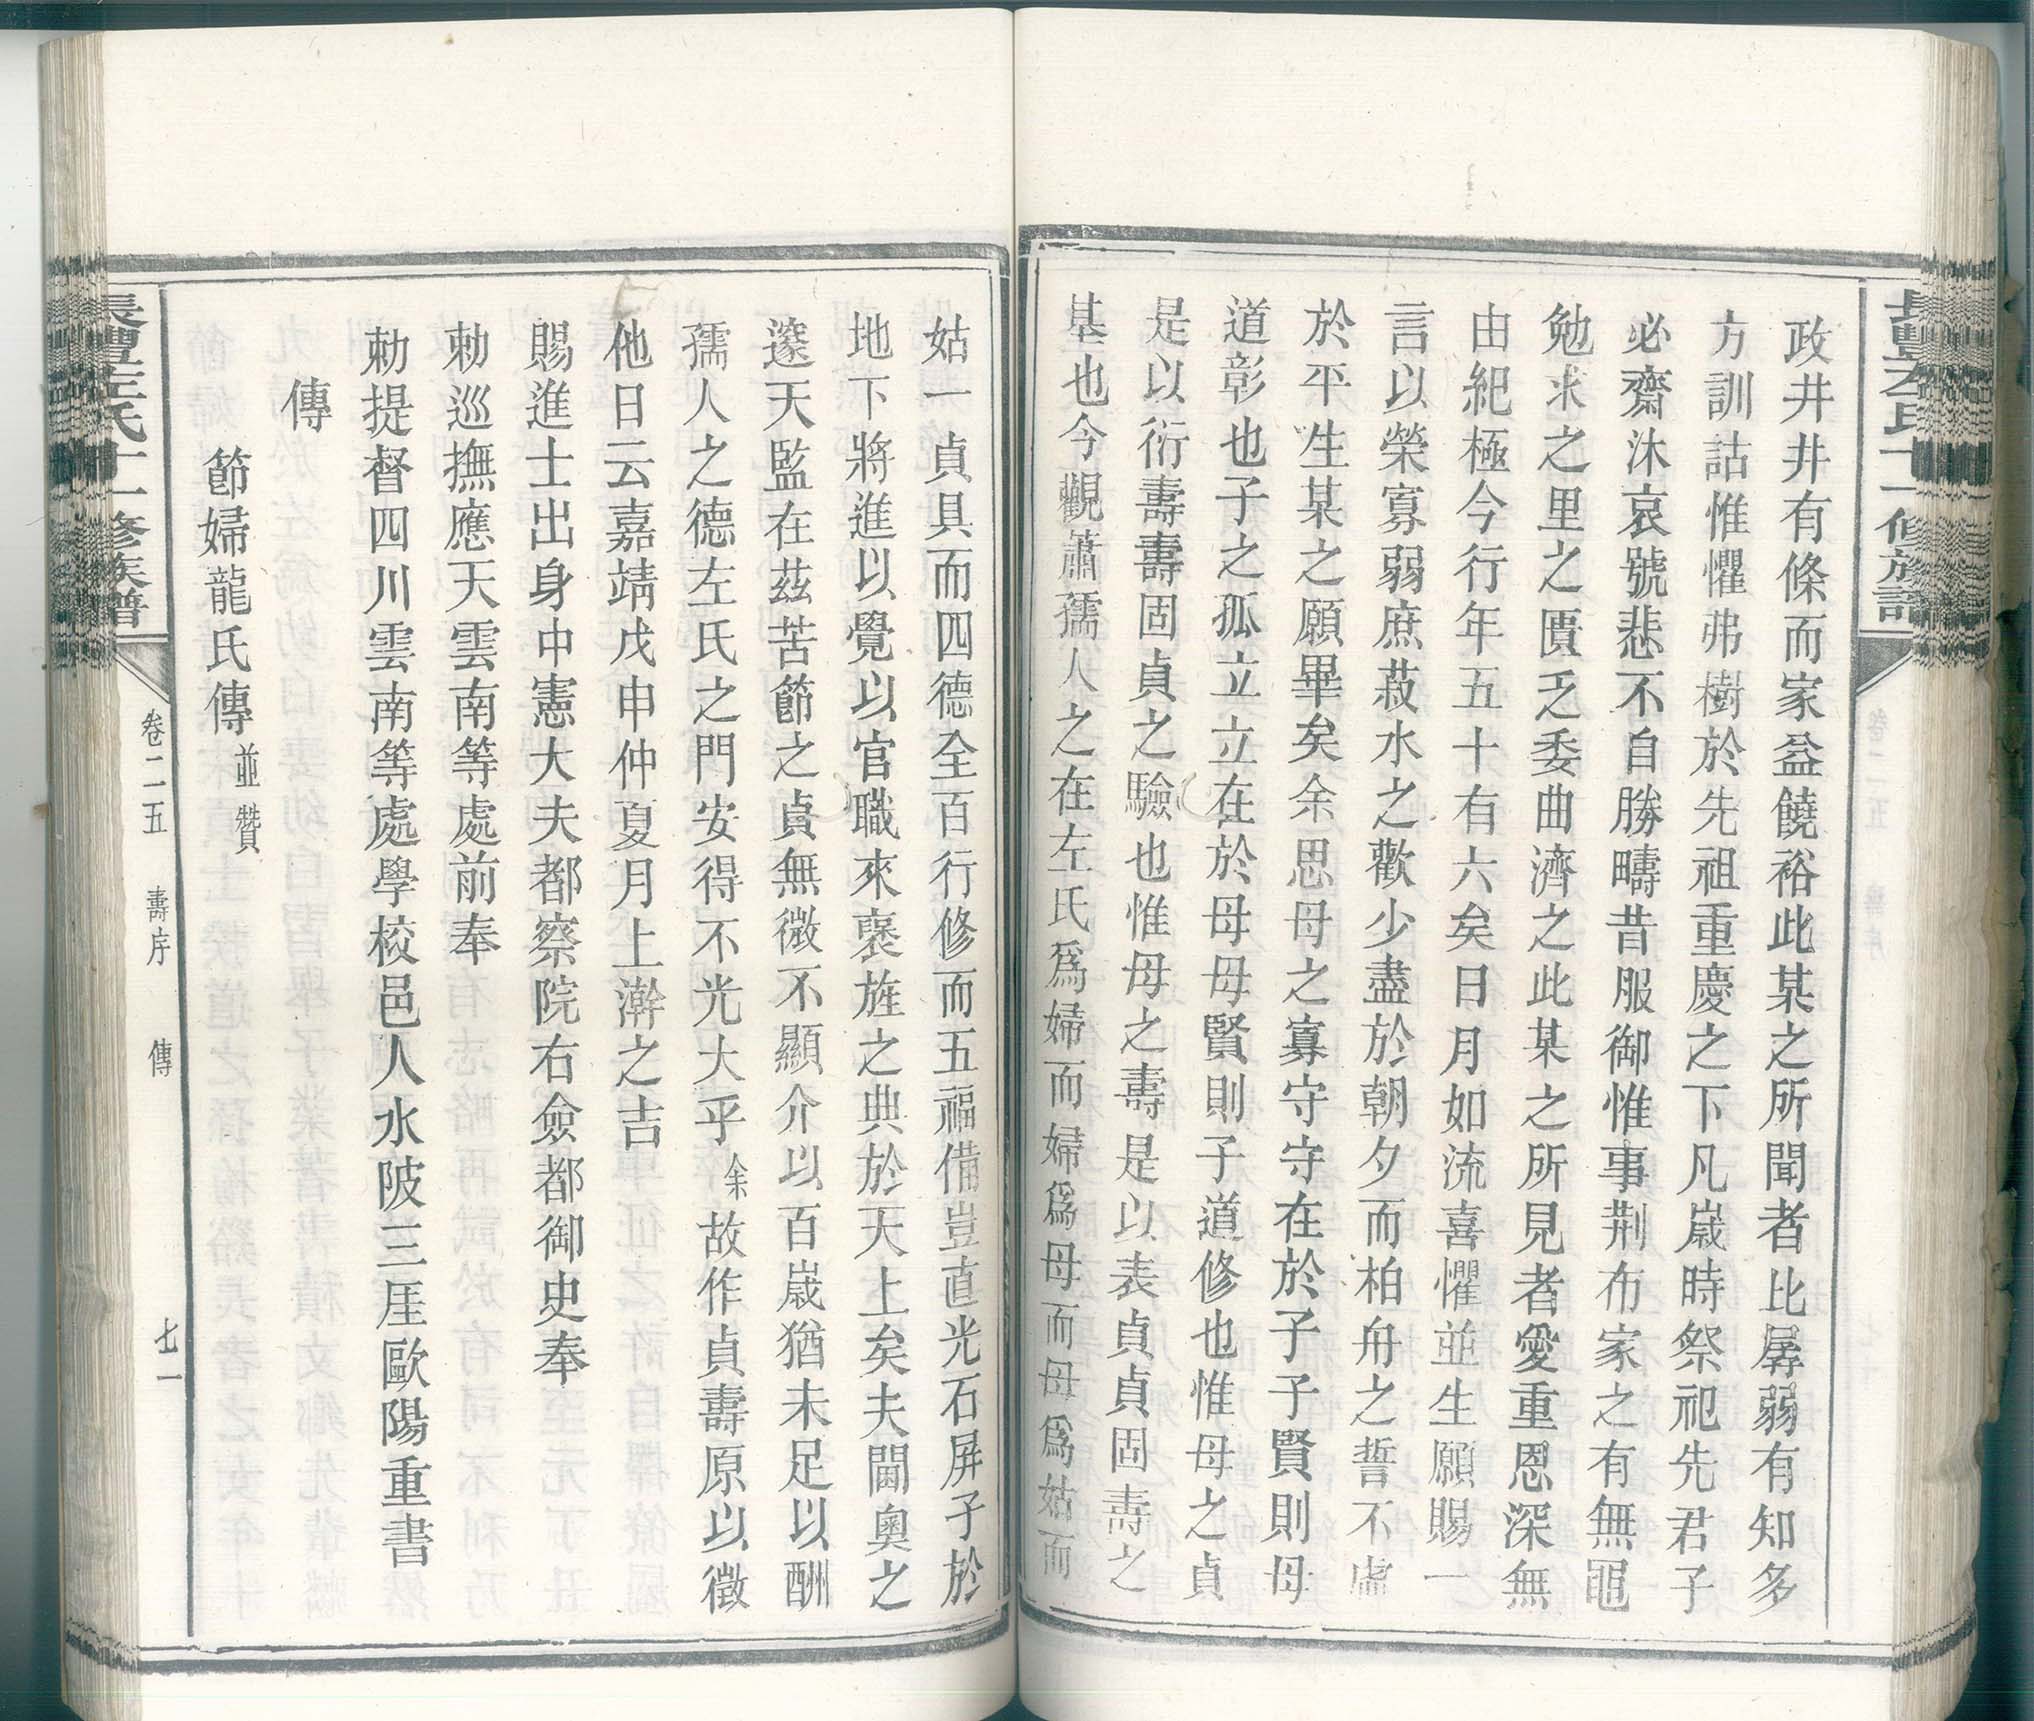 長豐左氏十一修族譜
政井井有條而家益饒裕此某之所聞者比孱弱有知多
方訓詁惟懼弗樹於先祖重慶之下凡歲時祭祀先君子
必齋沐哀號悲不自勝疇昔服御惟事荆布家之有無黽
勉求之里之匱乏委曲濟之此某之所見者愛重恩深無
由紀極今行年五十有六矣日月如流喜懼並生願賜一
言以榮寡弱庶菽水之歡少盡於朝夕而柏舟之誓不虛
於平生某之願畢矣余思母之寡守守在於子子賢則母
道彰也子之孤立立在於母母賢則子道修也惟母之貞
是以衍壽壽固貞之驗也惟母之壽是以表貞貞固壽之
基也今觀蕭孺人之在左氏爲婦而婦爲母而母爲姑而
姑一貞具而四德全百行修而五福備豈直光石屏子於
地下將進以覺以官職來褒旌之典於天上矣夫閫奧之
邃天監在茲苦節之貞無微不顯介以百歲猶未足以酬
孺人之德左氏之門安得不光大乎余故作貞壽原以徵
他日云嘉靖戊申仲夏月上澣之吉
賜進士出身中憲大夫都察院右僉都御史奉
勅巡撫應天雲南等處前奉
勅提督四川雲南等處學校邑人水陂三厓歐陽重書
傳
節婦龍氏傳並贊
長豐左氏十一修族譜
卷二五 壽序 傳 七一